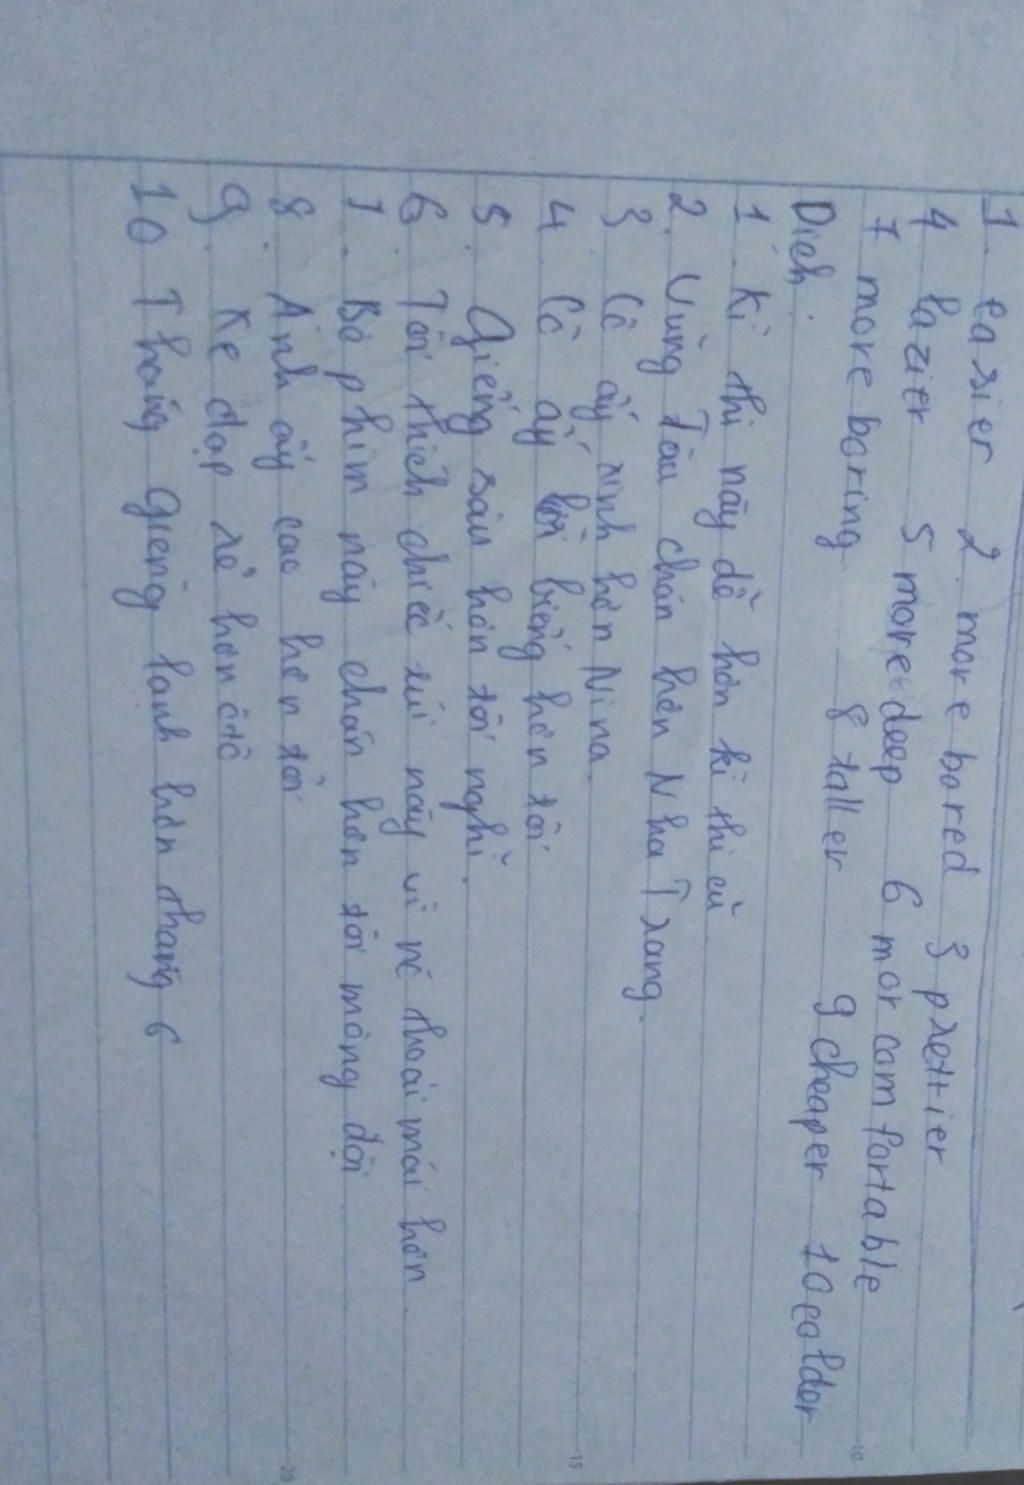 1. easier 2. more bored 3 prettier
4 lazier 5 more deep 6 mor comfortable
7 more boring 8 taller 9 cheaper 10 colder
Dịch:
1. Kì thi này dễ hơn kì thi cũ
2. Vũng Tàu chán hơn Nha Trang.
3. Cô ấy xinh hơn Nina.
4. Cô ấy lười biếng hơn tôi
5. Giếng sâu hơn tôi nghĩ.
6. Tôi thích chiếc túi này vì nó thoải mái hơn.
7. Bộ phim này chán hơn tôi mong đợi
8. Anh ấy cao hơn tôi
9. Xe đạp rẻ hơn ôtô
10 Tháng giêng lạnh hơn tháng 6
10
15
20